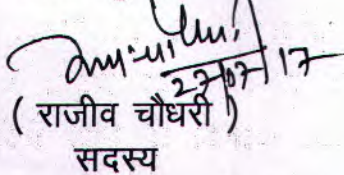 27/07/17
( राजीव चौधरी )
सदस्य